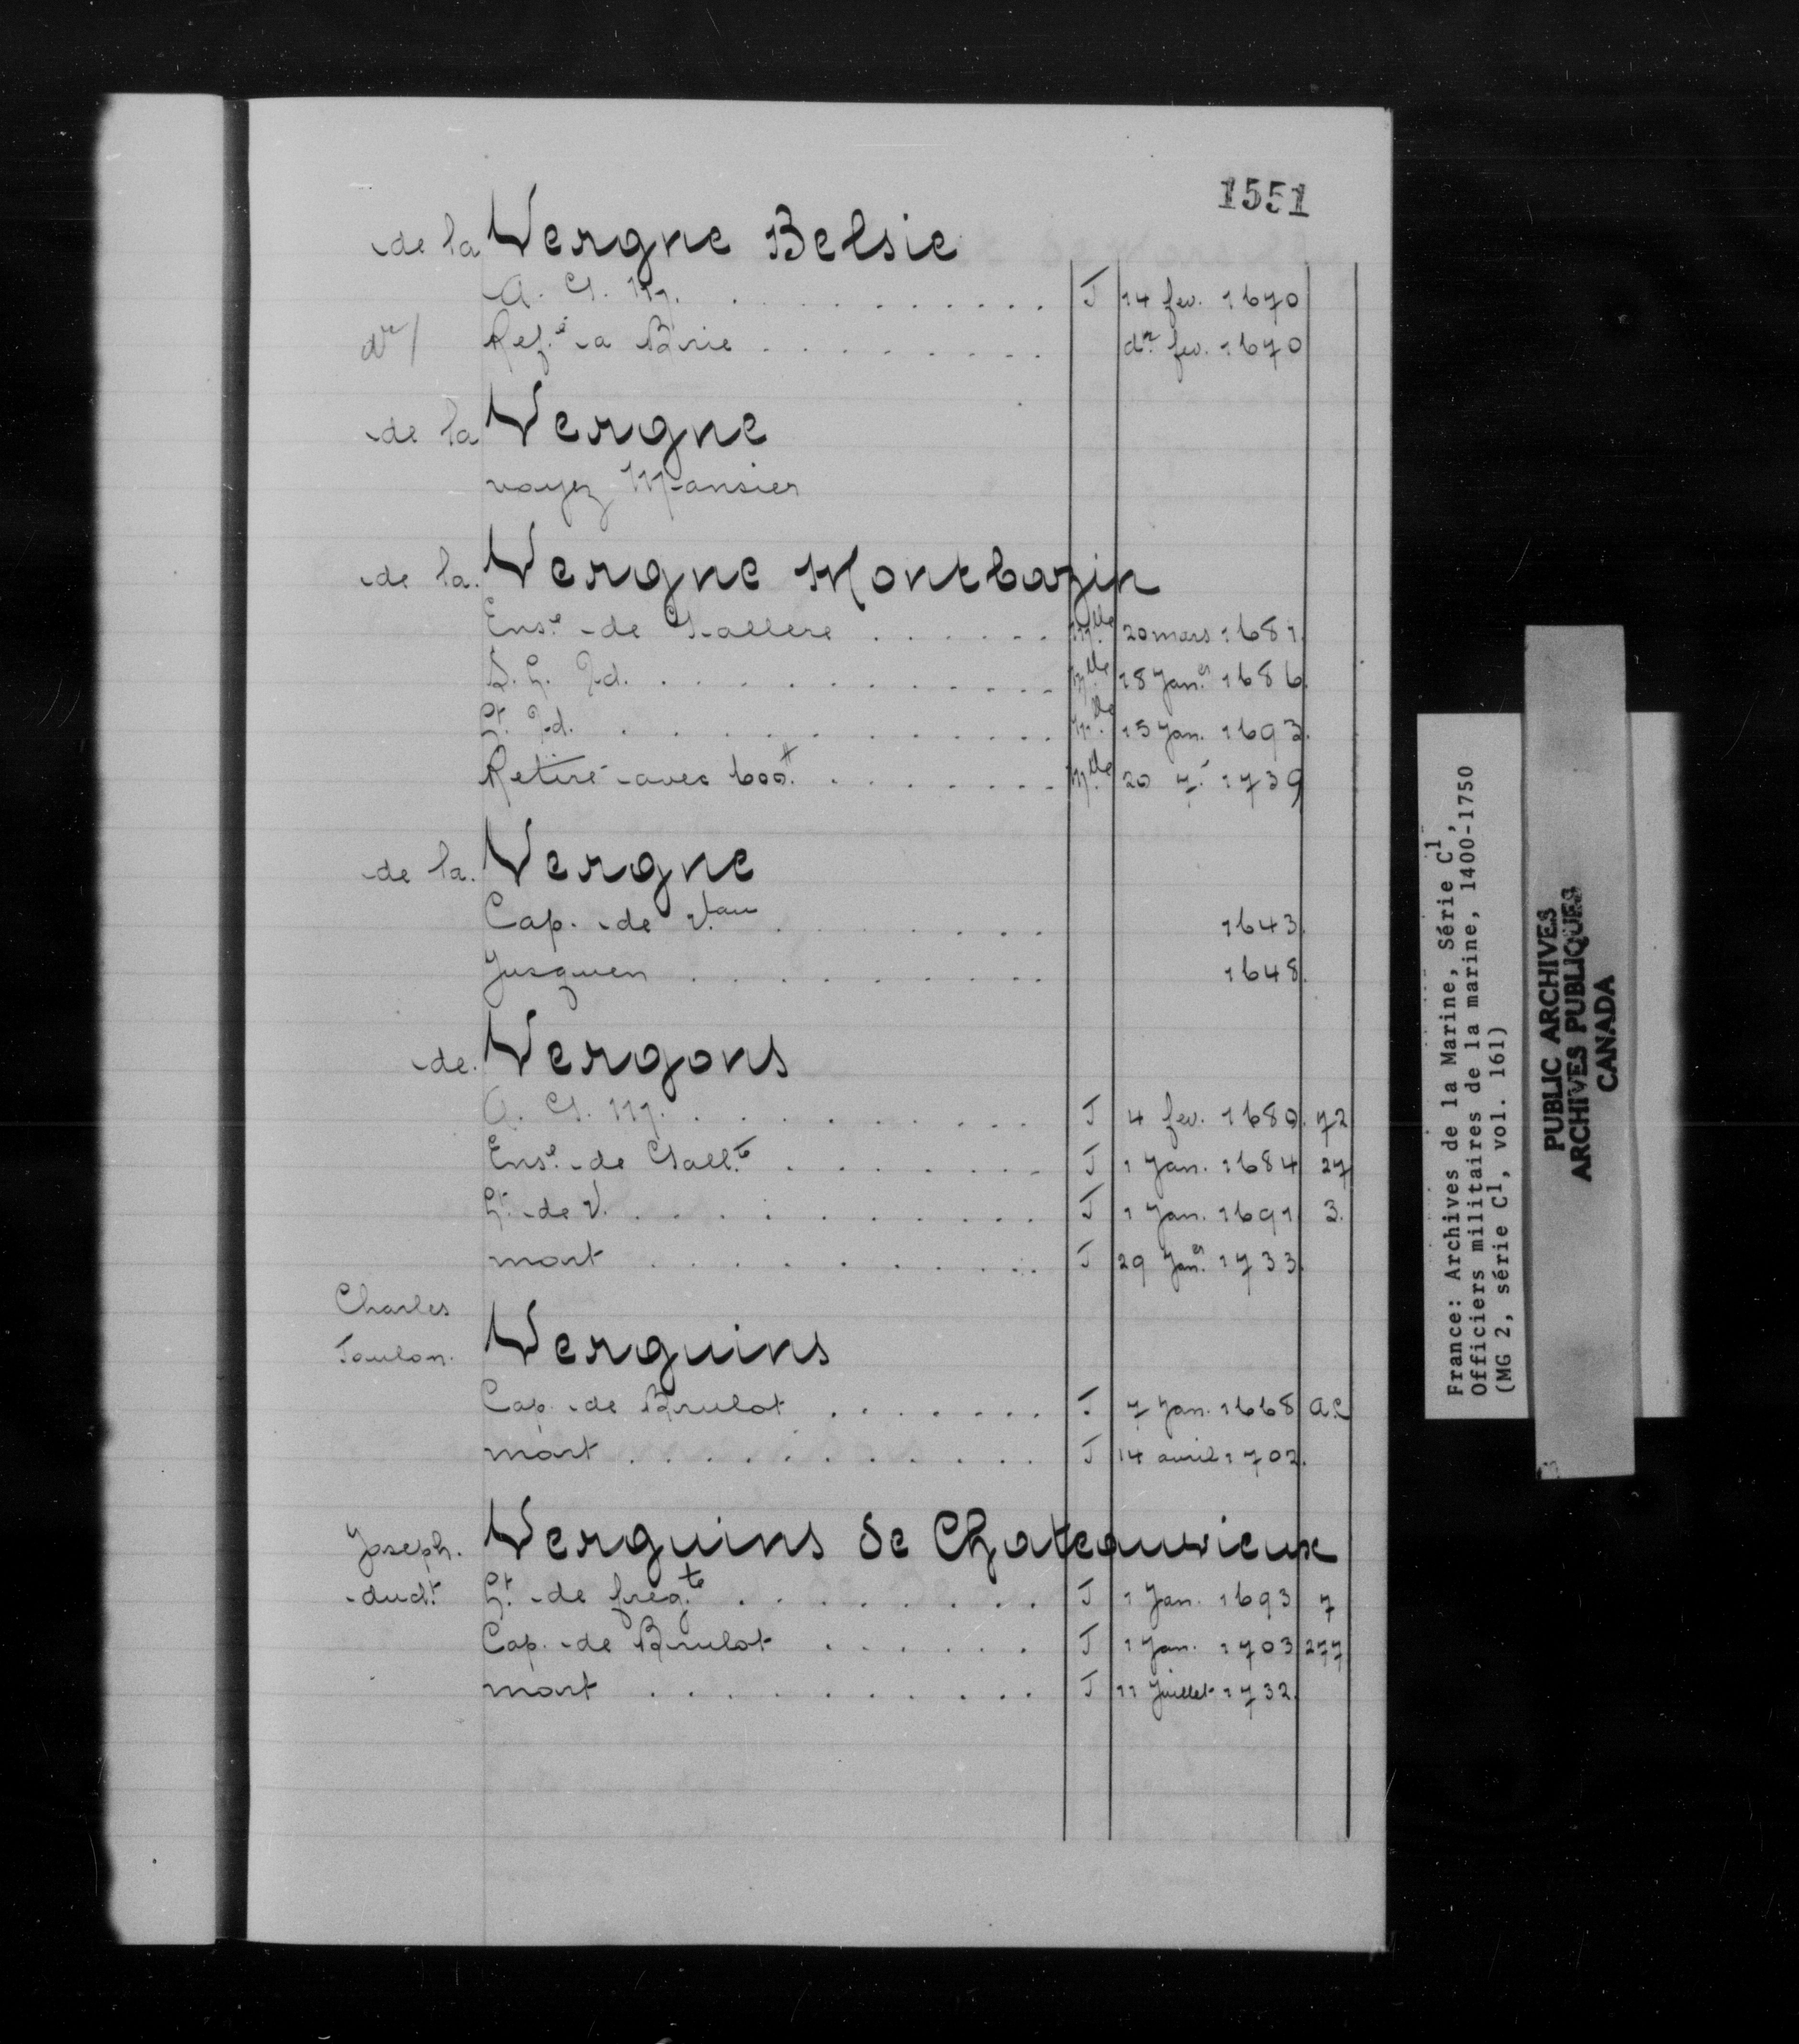 1551
de la Vergne Belsie
A. G. M. . . . . . . . . . . . J 14 fev. 1670
Ref.é a Brie . . . . . . . . . dr. fev. 1670
de la Vergne
voyez Mansier
de la. Vergne Montbazin
Ens.e de Gallere . . . . . . M.lle 20 mars 1681.
S. L. Id. . . . . . . . . . . . . M.lle 18 Jan.er 1686.
Lt. Id. . . . . . . . . . . . . M.lle 15 Jan. 1693.
Retiré avec 600.# . . . . . . . M.lle 20 7.e 1739
de la. Vergne
Cap. de V.au . . . . . . . . 1643.
Jusquen . . . . . . . . . 1648.
de. Vergons
A. G. M. . . . . . . . . . . J 4 fev. 1680. 72
Ens.e de Gall.te . . . . . . . . J 1 Jan. 1684 27
Lt. de V. . . . . . . . . . . . J 1 Jan. 1691 3.
mort . . . . . . . . . . . J 29 Jan.er 1733.
Charles
Toulon. Verguins
Cap. de Brulot . . . . . . . J 7 Jan. 1668 a.C
mort . . . . . . . . . . . J 14 avril 1702.
Joseph. Verguins de Chateauvieux
dud.t Lt. de freg.te . . . . . . . . . J 1 Jan. 1693 7
Cap. de Brulot . . . . . . J 1 Jan. 1703 277
mort . . . . . . . . . . J 11 Juillet 1732.
France: Archives de la Marine, Série C1,
Officiers militaires de la marine, 1400-1750
(MG 2, série C1, vol. 161)
PUBLIC ARCHIVES
ARCHIVES PUBLIQUES
CANADA